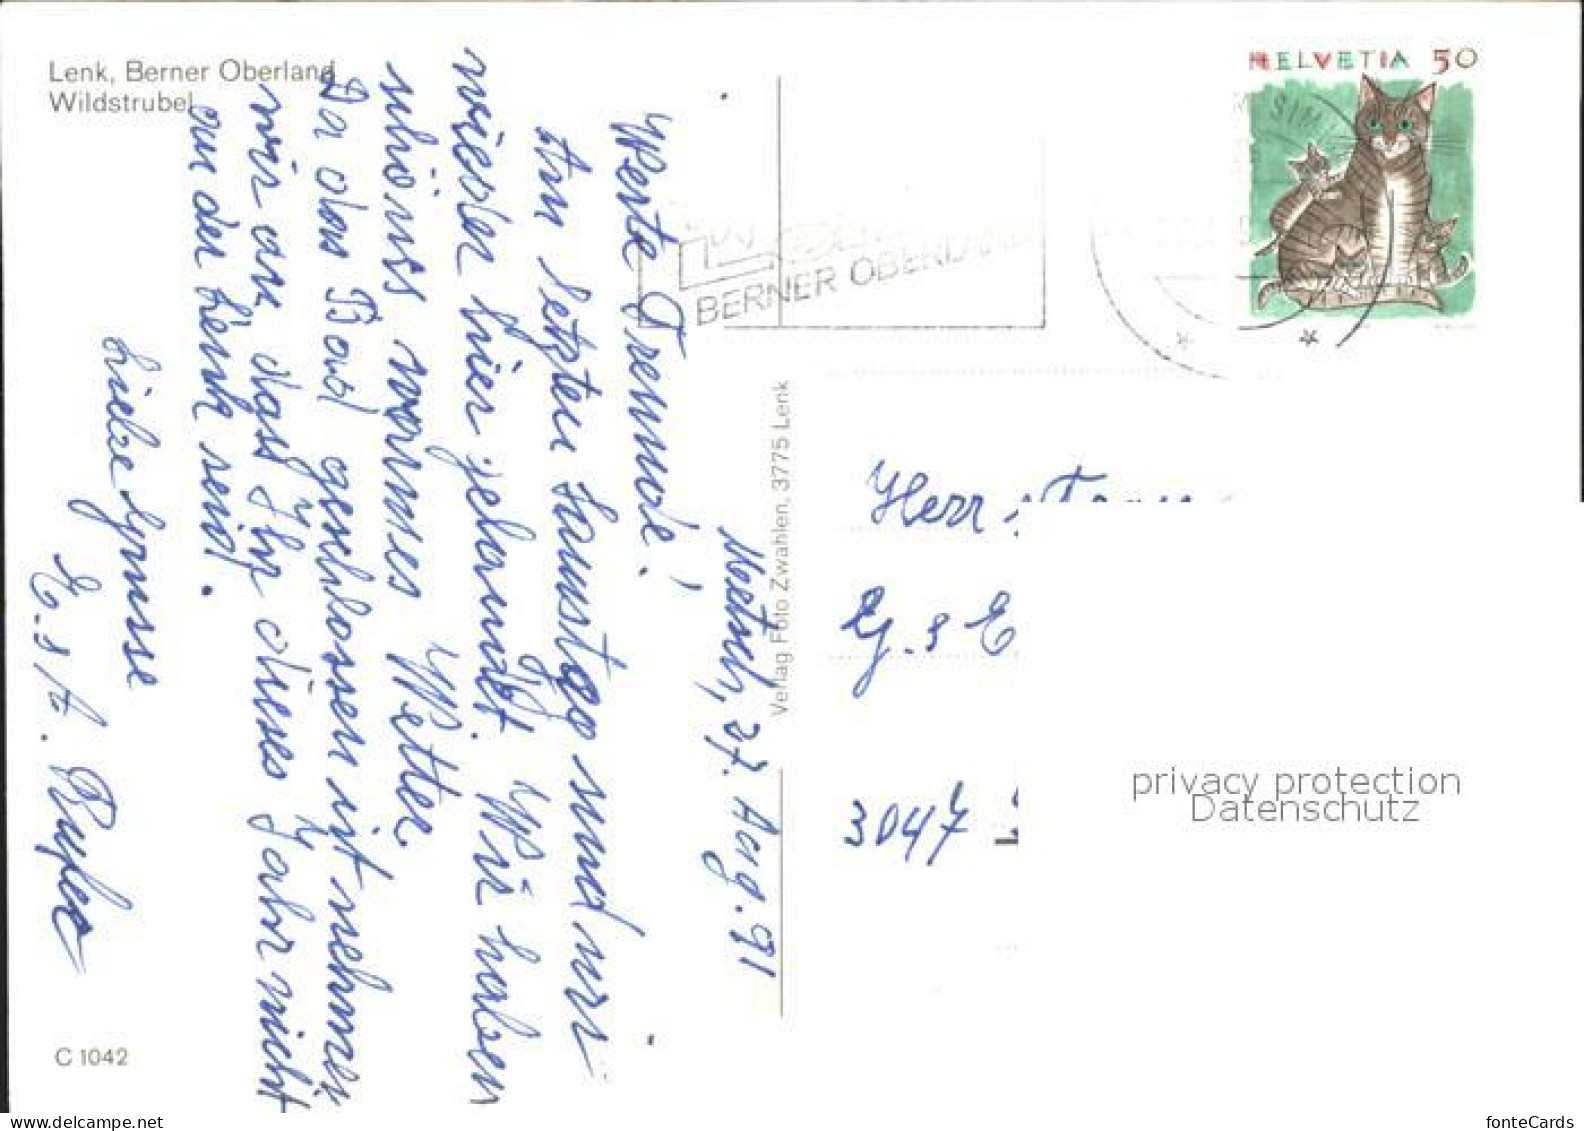 Lenk, Berner Oberland
Wildstrubel
HELVETIA 50
SIM
BERNER OBERLAND
Metsch, 27. Aug. 91
Werte Freunde!
Am letzten Samstag sind wir
wieder hier gelandet. Wir haben
schönes warmes Wetter.
Da das Bad geschlossen ist nehmen
wir an, dass Ihr dieses Jahr nicht
an der Lenk seid.
Liebe Grüsse
Verlag Foto Zwahlen, 3775 Lenk
Herr
3047
privacy protection
Datenschutz
C 1042
www.delcampe.net
fonteCards